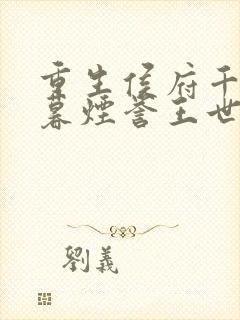 重生侯府千
暮煙誉王世
劉義